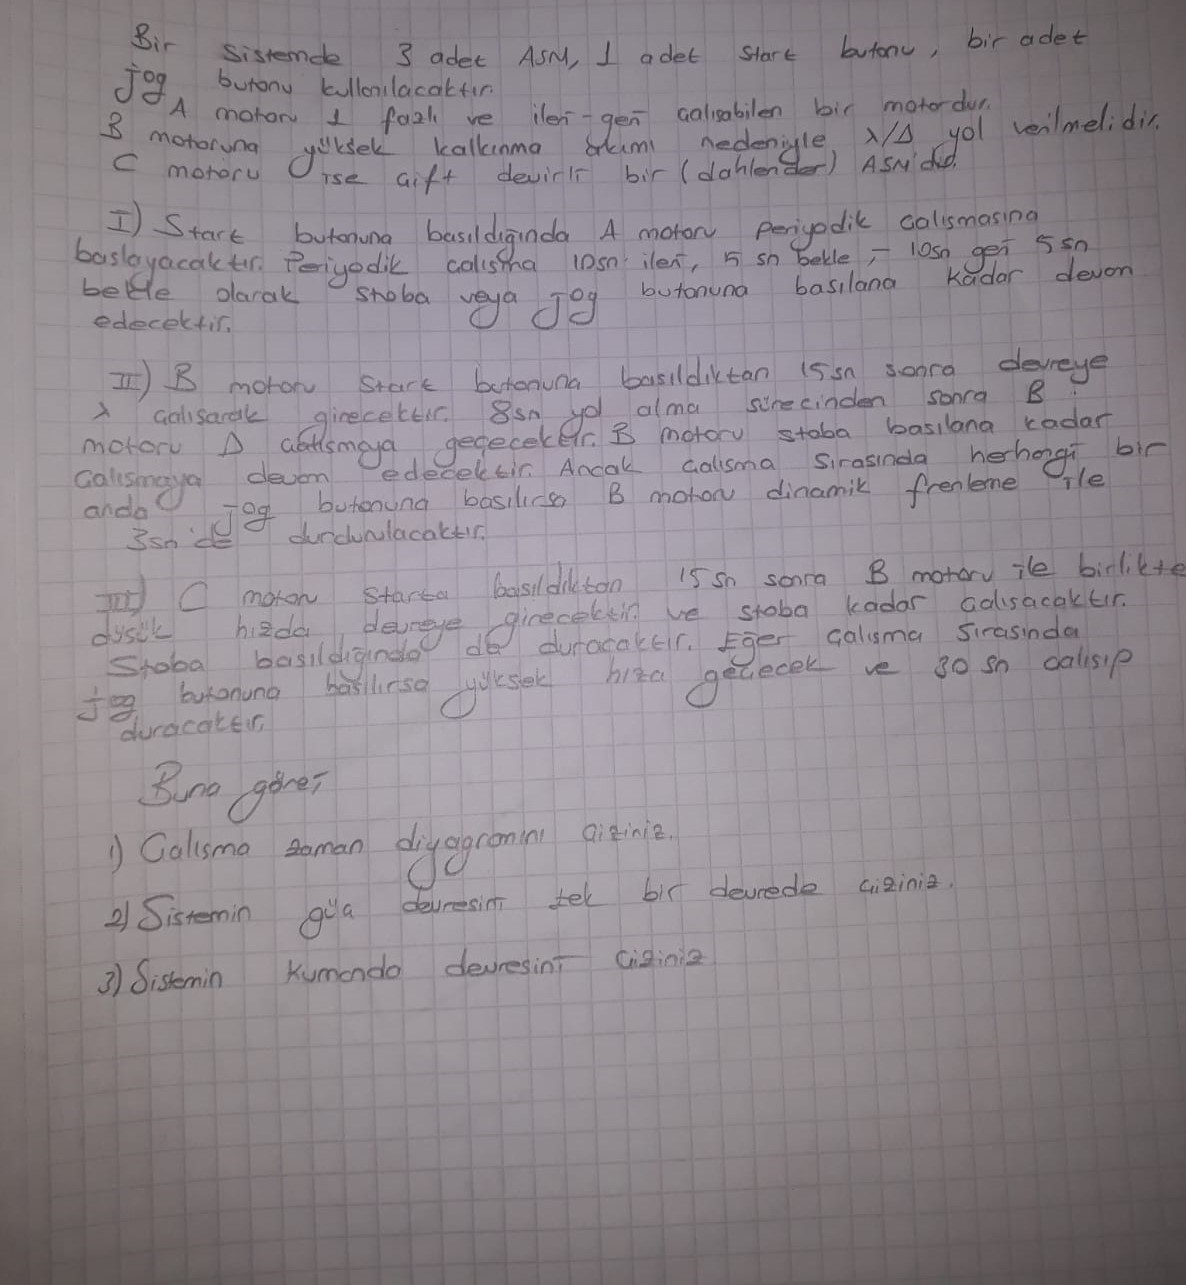 Bir sistemde 3 adet ASM, 1 adet start butonu, bir adet
jog butonu kullanılacaktır.
A motoru 1 fazlı ve ileri-geri çalışabilen bir motordur.
B motoruna yüksek kalkınma akımı nedeniyle λ/Δ yol verilmelidir.
C motoru ise çift devirli bir (dahlender) ASM'dir.
I) Start butonuna basıldığında A motoru periyodik çalışmasına
başlayacaktır. Periyodik çalışma 10sn ileri, 5 sn bekle, 10sn geri 5 sn
bekle olarak stoba veya jog butonuna basılana kadar devam
edecektir.
II) B motoru Start butonuna basıldıktan 15 sn sonra devreye
λ çalışarak girecektir. 8sn yol alma sürecinden sonra B
motoru Δ çalışmaya geçecektir. B motoru stoba basılana kadar
çalışmaya devam edecektir. Ancak çalışma sırasında herhangi bir
anda jog butonuna basılırsa B motoru dinamik frenleme ile
3sn'de durdurulacaktır.
III) C motoru starta basıldıktan 15 sn sonra B motoru ile birlikte
düşük hızda devreye girecektir. ve stoba kadar çalışacaktır.
Stoba basıldığında da duracaktır. Eğer çalışma sırasında
jog butonuna basılırsa yüksek hıza geçecek ve 30 sn çalışıp
duracaktır.
Buna göre;
1) Çalışma zaman diyagramını çiziniz.
2) Sistemin güç devresini tek bir devrede çiziniz.
3) Sistemin kumanda devresini çiziniz